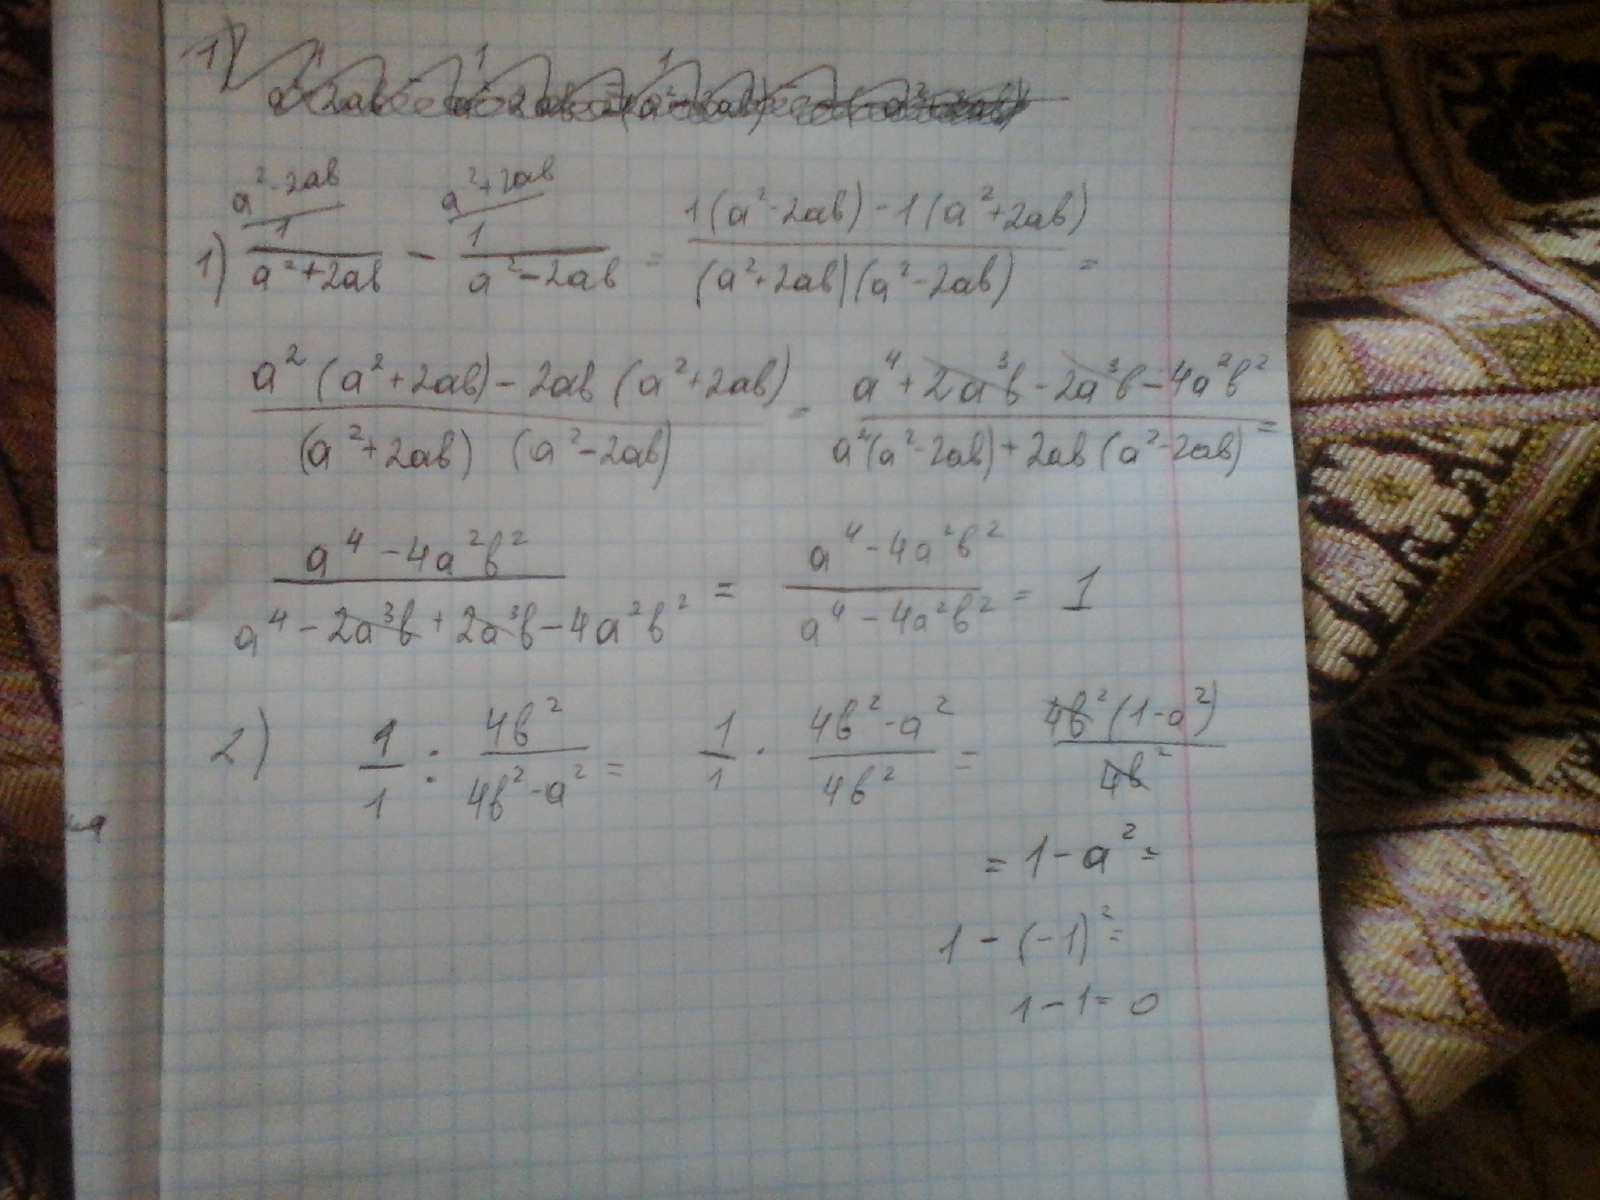 1)
a² - 2ab a² + 2ab
1) 1/(a² + 2ab) - 1/(a² - 2ab) = (1(a² - 2ab) - 1(a² + 2ab))/((a² + 2ab)(a² - 2ab)) =
(a²(a² + 2ab) - 2ab(a² + 2ab))/((a² + 2ab)(a² - 2ab)) = (a⁴ + 2a³b - 2a³b - 4a²b²)/(a²(a² - 2ab) + 2ab(a² - 2ab)) =
(a⁴ - 4a²b²)/(a⁴ - 2a³b + 2a³b - 4a²b²) = (a⁴ - 4a²b²)/(a⁴ - 4a²b²) = 1
2) 1/1 : 4b²/(4b² - a²) = 1/1 · (4b² - a²)/4b² = 4b²(1 - a²)/4b²
= 1 - a² =
1 - (-1)² =
1 - 1 = 0